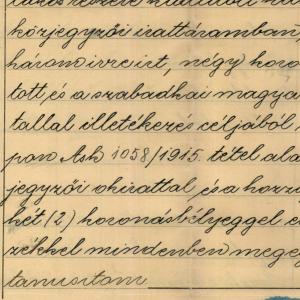 közjegyzői irattáramban
háromívreírt, négy koro
tott és a szabadkai magya
tallal illetékezés céljából
pon Ash 1058/1915. tétel ala
jegyzői okirattal és a hozz
két (2) koronás bélyeggel e
zékkel mindenben mege
tanusítom